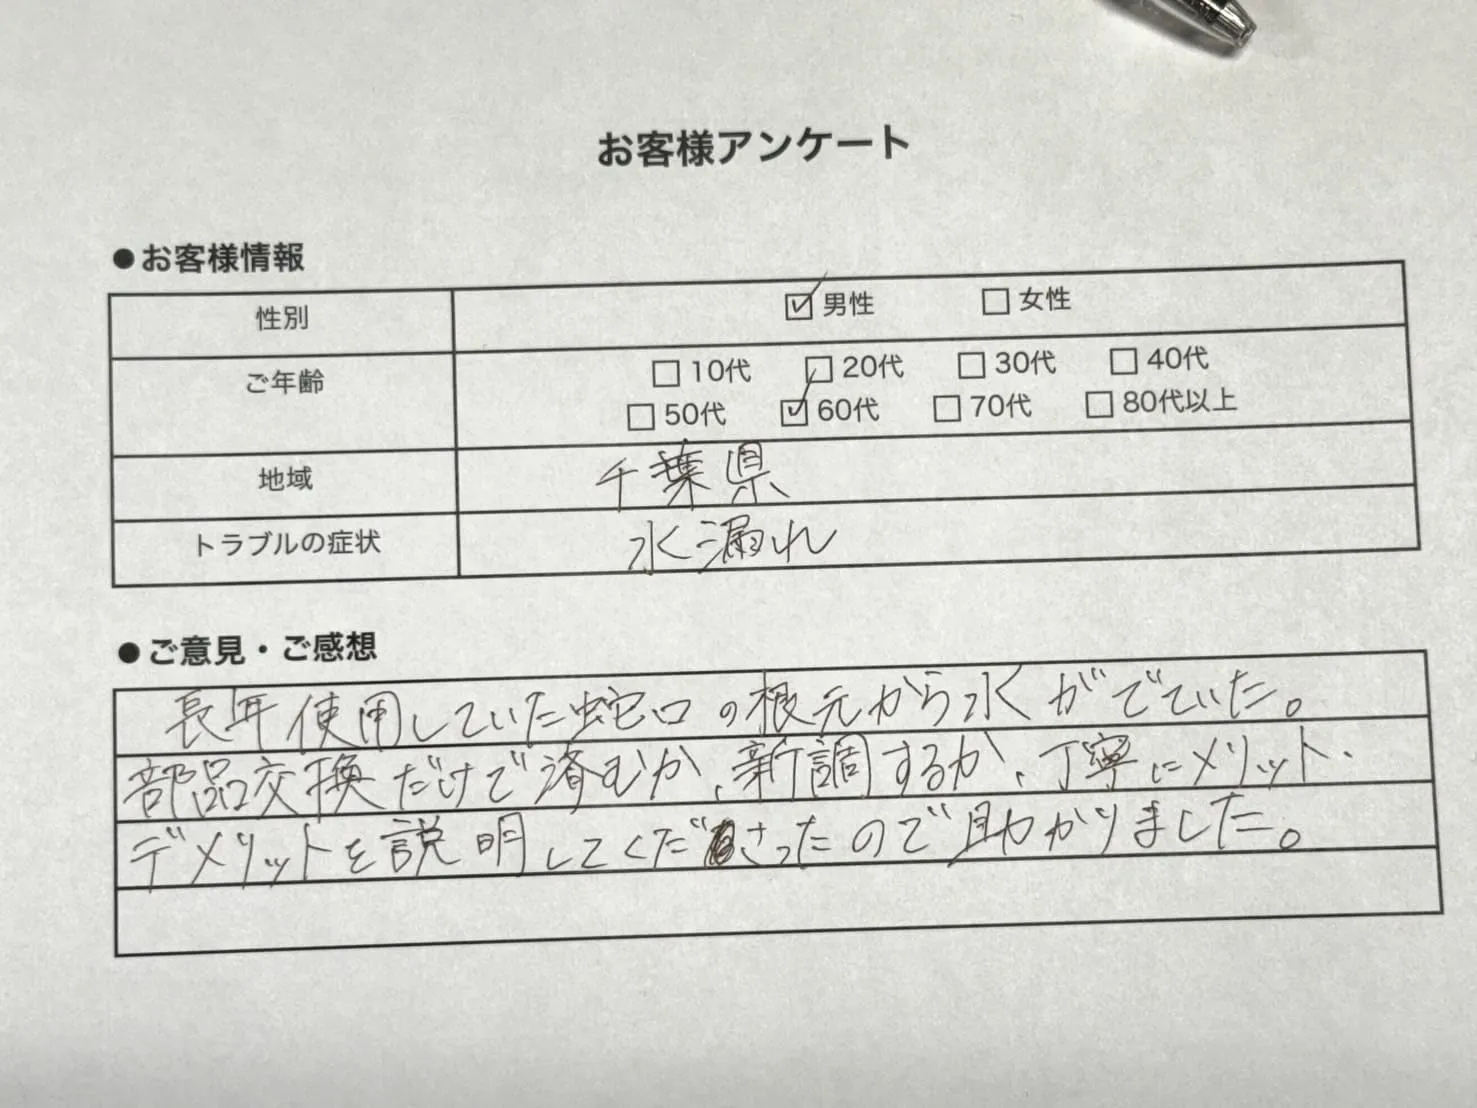 お客様アンケート
●お客様情報
性別 ☑男性 □女性
ご年齢 □10代 □20代 □30代 □40代
□50代 ☑60代 □70代 □80代以上
地域 千葉県
トラブルの症状 水漏れ
●ご意見・ご感想
長年使用していた蛇口の根元から水がでていた。
部品交換だけで済むか、新調するか、丁寧にメリット・
デメリットを説明してくださったので助かりました。